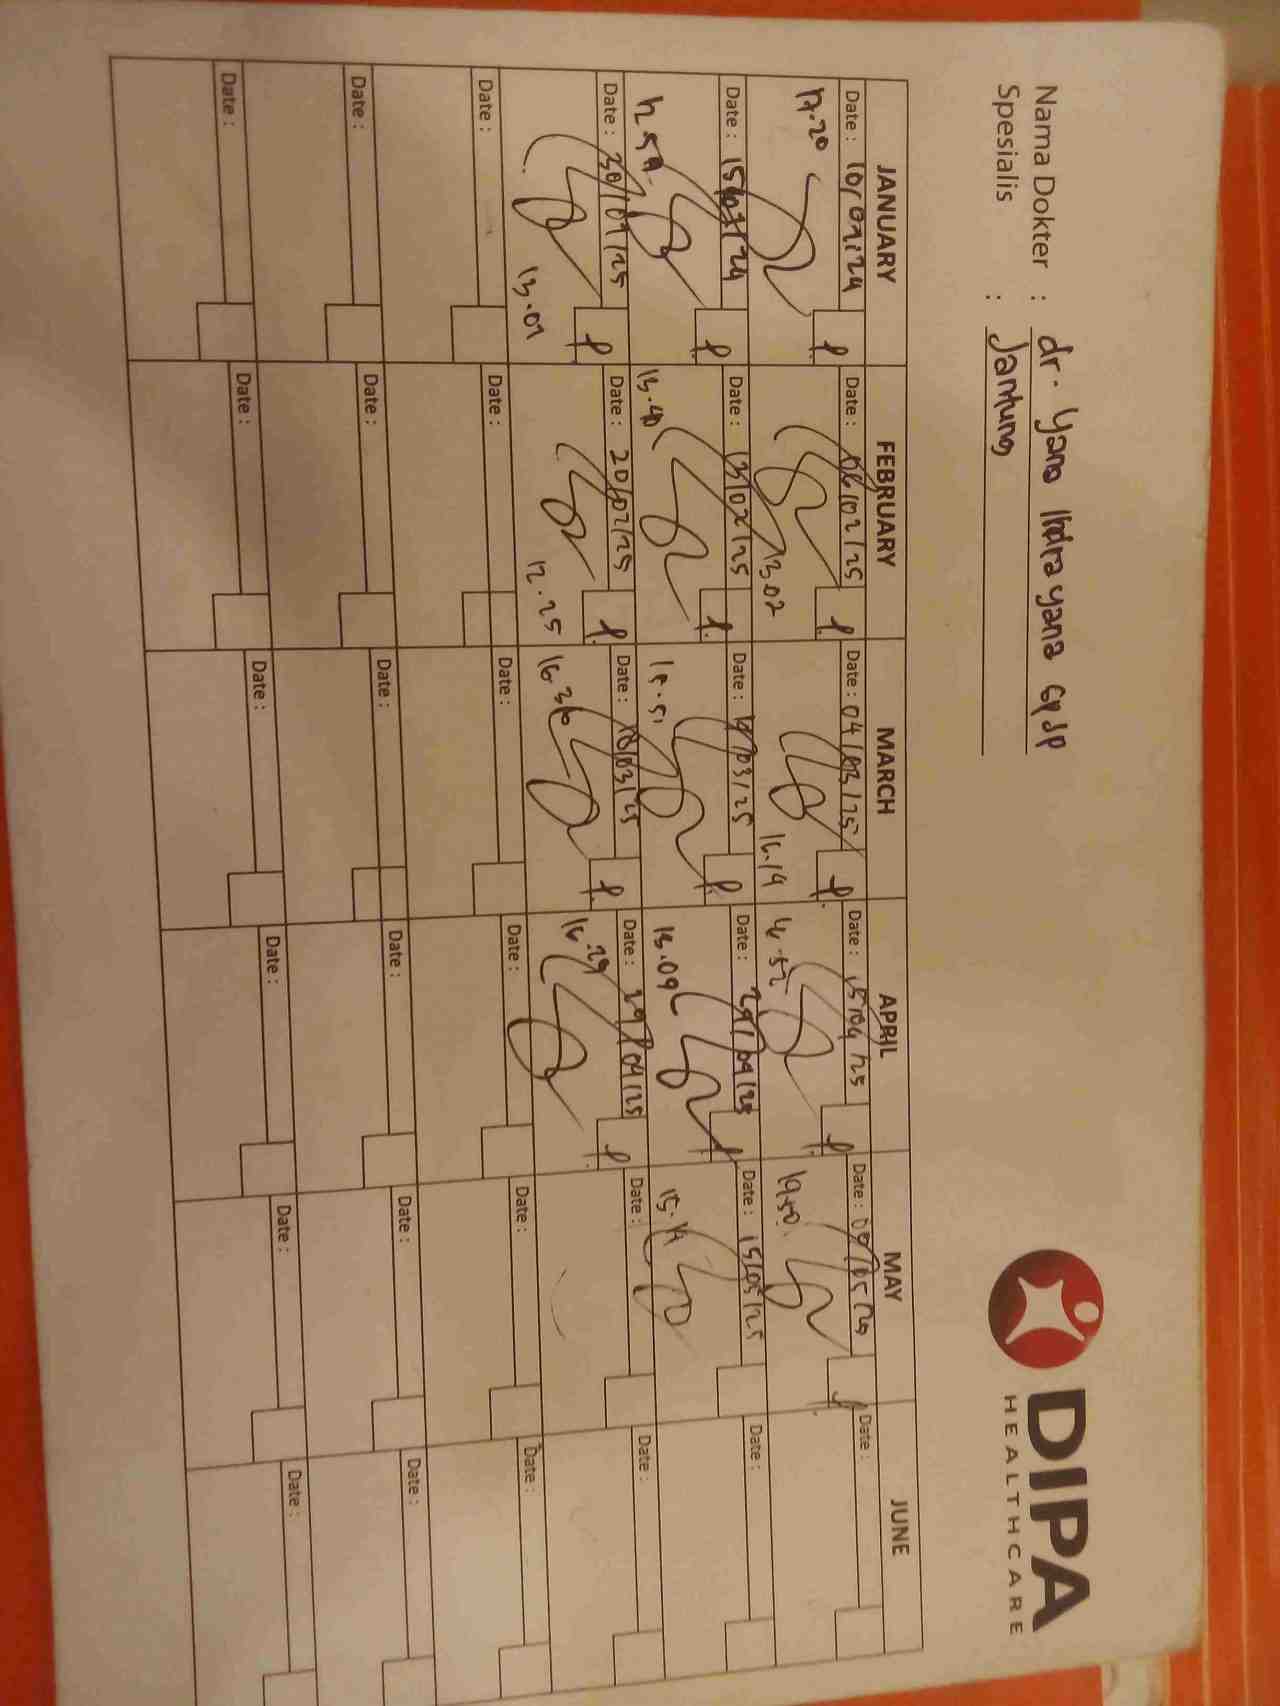 DIPA
HEALTHCARE
Nama Dokter : dr. Yana Indrayana SpJP
Spesialis : Jantung
JANUARY FEBRUARY MARCH APRIL MAY JUNE
Date : 10/01/24 Date : 06/02/25 Date : 04/03/25 Date : 15/04/25 Date : Date :
17.20 13.02 16.14 19.50
Date : 15/01/24 Date : 13/02/25 Date : /03/25 Date : Date : 15/05/25 Date :
13.40 13.09 15.14
Date : 30/01/25 Date : 20/02/25 Date : 18/03/25 Date : 29/04/25 Date : Date :
13.01 12.25 16.36 16.29
Date : Date : Date : Date : Date : Date :
Date : Date : Date : Date : Date : Date :
Date : Date : Date : Date : Date : Date :